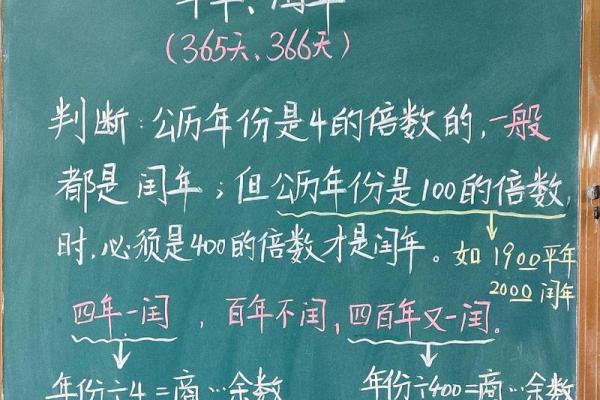 平年、闰年
(365天、366天)
判断:公历年份是4的倍数的,一般
都是闰年;但公历年份是100的倍数,
时,必须是400的倍数才是闰年。如 1900平年
2000 闰年
四年一闰,百年不闰,四百年又一闰。
年份÷4=商…余数 年份÷400=商…余数